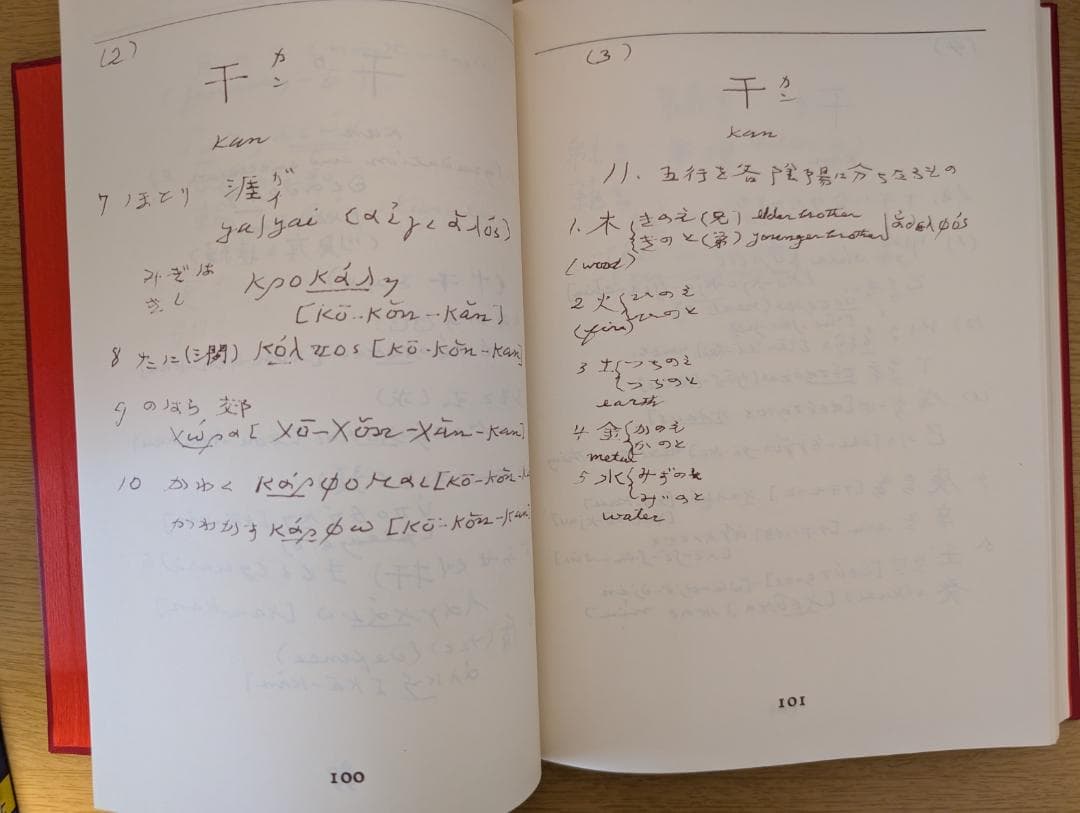 (2)
干 カン
kan
7 ほとり 涯 ガイ
ya/yai (αἰγιαλός)
みぎは
きし κροκάλη
[kō-kŏn-kăn]
8 たに(澗) κόλπος [kō-kŏn-kan]
9 のはら 郊
χώρα [χō-χŏn-χăn-kan]
10 かわく κάρφομαι [kō-kŏn-
かわかす κάρφω [kō-kŏn-kan]
100
(3)
干 カン
kan
11. 五行を各陰陽に分ちたるもの
1. 木 きのえ(兄) elder brother
きのと(弟) younger brother ἀδελφός
(wood)
2 火 ひのえ
ひのと
(fire)
3 土 つちのえ
つちのと
earth
4 金 かのえ
かのと
metal
5 水 みずのえ
みずのと
water
101